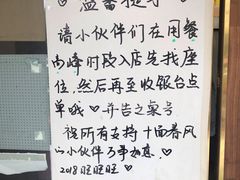 温馨提示
请小伙伴们在用餐
高峰时段入店先找座
位,然后再至收银台点
单哦♡ 并告之桌号
祝所有支持十面春风
的小伙伴万事如意.♡
2018旺旺旺♡